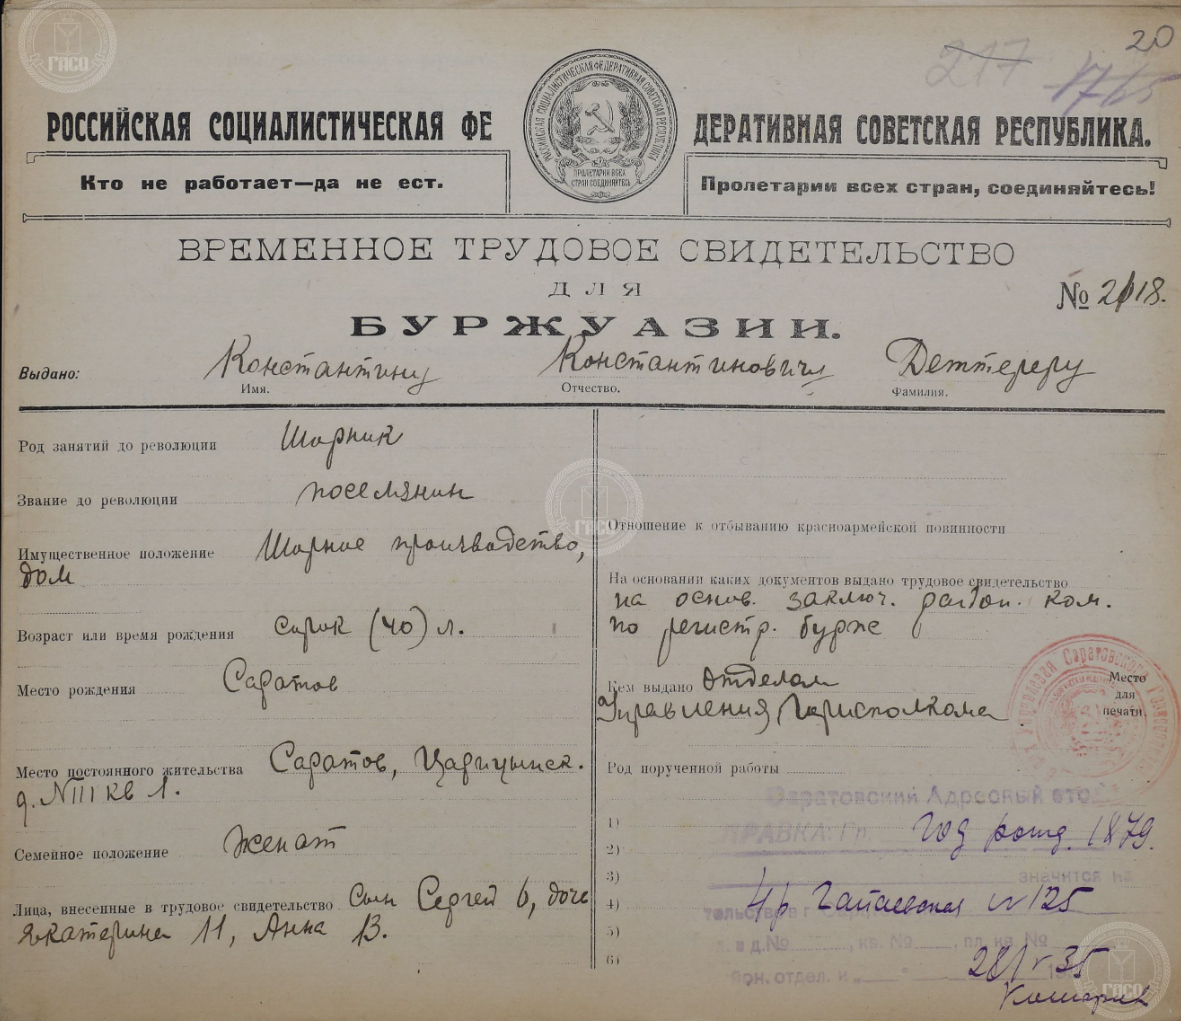 20
217
1765
РОССИЙСКАЯ СОЦИАЛИСТИЧЕСКАЯ ФЕ ДЕРАТИВНАЯ СОВЕТСКАЯ РЕСПУБЛИКА.
РОССИЙСКАЯ СОЦИАЛИСТИЧЕСКАЯ ФЕДЕРАТИВНАЯ СОВЕТСКАЯ РЕСПУБЛИКА
ПРОЛЕТАРИИ ВСЕХ
СТРАН СОЕДИНЯЙТЕСЬ
Кто не работает—да не ест. Пролетарии всех стран, соединяйтесь!
ВРЕМЕННОЕ ТРУДОВОЕ СВИДЕТЕЛЬСТВО
ДЛЯ
№ 2118.
БУРЖУАЗИИ.
Выдано: Константину Константиновичу Деттереру
Имя. Отчество. Фамилия.
Род занятий до революции Шорник
Звание до революции поселянин
Имущественное положение Шорное производство,
дом
Возраст или время рождения сорок (40) л.
Место рождения Саратов
Место постоянного жительства Саратов, Царицынск.
Семейное положение женат
Лица, внесенные в трудовое свидетельство Сын Сергей 6, дочь
Екатерина 11, Анна 13.
Отношение к отбыванию красноармейской повинности
На основании каких документов выдано трудовое свидетельство
на основ. заключ. район. ком.
по регистр. бурж
Кем выдано Отделом
Управления Горисполкома
Место
для
печати.
Род порученной работы
Саратовский Адресный сто
1)
ПРАВКА: Гр. Год рожд. 1879.
2)
3) значится на
4) 4р Чапаевская № 125
5)
д.№ , кв. №
6)
28/V 35
ГАСО
ГАСО
ГАСО